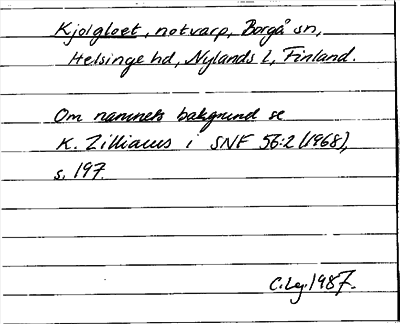 Kjolgloet, notvarp, Borgå sn,
Helsinge hd, Nylands l, Finland.
Om namnets bakgrund se
K. Zilliacus i SNF 56:2 (1968),
s. 197.
C. Lej. 1987.